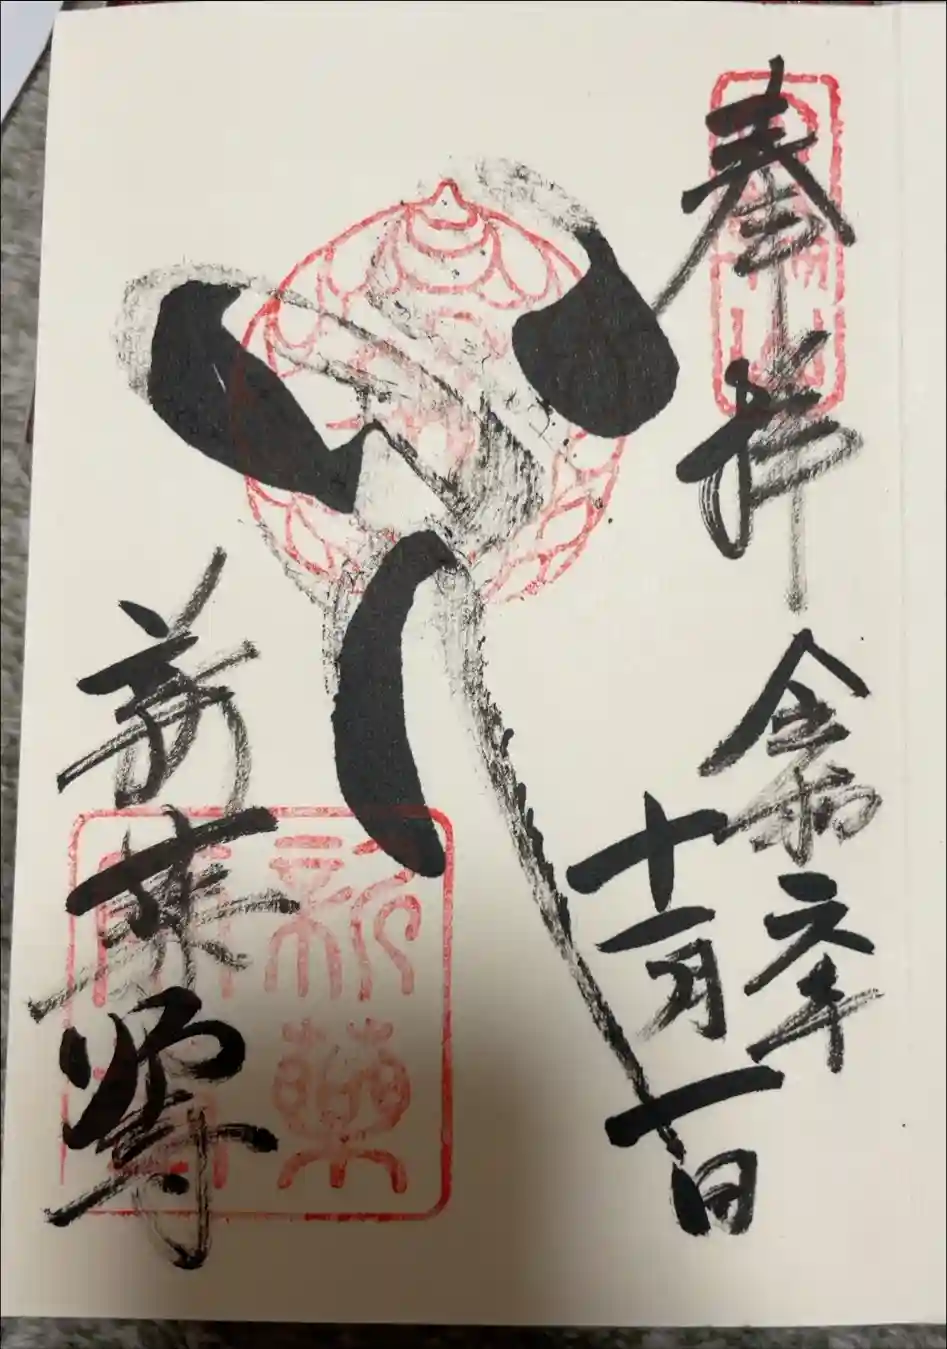 奉拝
令和元年
十一月一日
新薬師寺
新薬